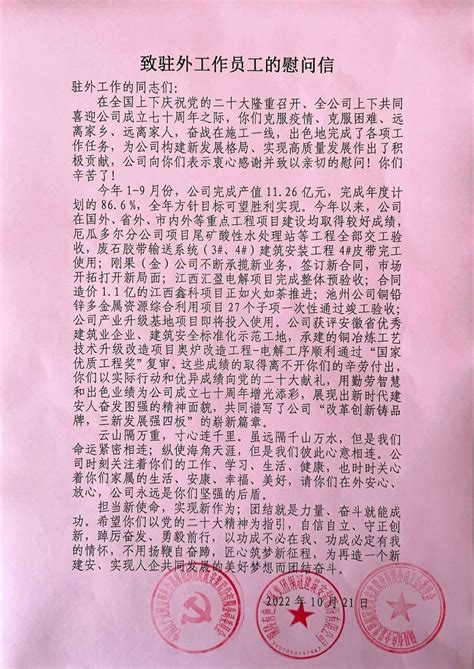 致驻外工作员工的慰问信
驻外工作的同志们:
在全国上下庆祝党的二十大隆重召开、全公司上下共同
喜迎公司成立七十周年之际,你们克服疫情、克服困难、远
离家乡、远离家人,奋战在施工一线,出色地完成了各项工
作任务,为公司构建新发展格局、实现高质量发展作出了积
极贡献,公司向你们表示衷心感谢并致以亲切的慰问!你们
辛苦了!
今年 1-9 月份,公司完成产值 11.26 亿元,完成年度计
划的 86.6%,全年方针目标可望胜利实现。今年以来,公司
在国外、省外、市内外等重点工程项目建设均取得较好成绩,
厄瓜多尔分公司项目尾矿酸性水处理站等工程全部交工验
收,废石胶带输送系统(3#、4#)建筑安装工程 4#皮带完工
使用;刚果(金)公司不断承揽新业务,签订新合同,市场
开拓打开新局面;江西汇盈电解项目完成整体预验收;合同
造价 1.1 亿的江西鑫科项目正如火如荼推进;池州公司铜铅
锌多金属资源综合利用项目 27 个子项一次性通过竣工验收;
公司产业升级基地项目即将投入使用。公司获评安徽省优秀
建筑业企业、建筑安全标准化示范工地,承建的铜冶炼工艺
技术升级改造项目奥炉改造工程-电解工序顺利通过“国家
优质工程奖”复审。这些成绩的取得离不开你们的辛劳付出,
你们以实际行动和优异成绩向党的二十大献礼,用勤劳智慧
和出色业绩为公司成立七十周年增光添彩,展现出新时代建
安人奋发图强的精神面貌,共同谱写了公司“改革创新铸品
牌,三新发展强四板”的崭新篇章。
云山隔万重,寸心连千里。虽远隔千山万水,但是我们
命运紧密相连;纵使海角天涯,但是我们彼此心意相连。公
司时刻关注着你们的工作、学习、生活、健康,也时时关心
着你们家属的生活、安康、幸福、美好,请你们在外安心、
放心,公司永远是你们坚强的后盾。
担当新使命,实现新作为;团结就是力量、奋斗就能成
功。希望你们以党的二十大精神为指引,自信自立、守正创
新,踔厉奋发、勇毅前行,以功成不必在我、功成必定有我
的情怀,不用扬鞭自奋蹄,匠心筑梦新征程,为再造一个新
建安、实现人企共同发展的美好梦想而团结奋斗。
2022 年 10 月 21 日